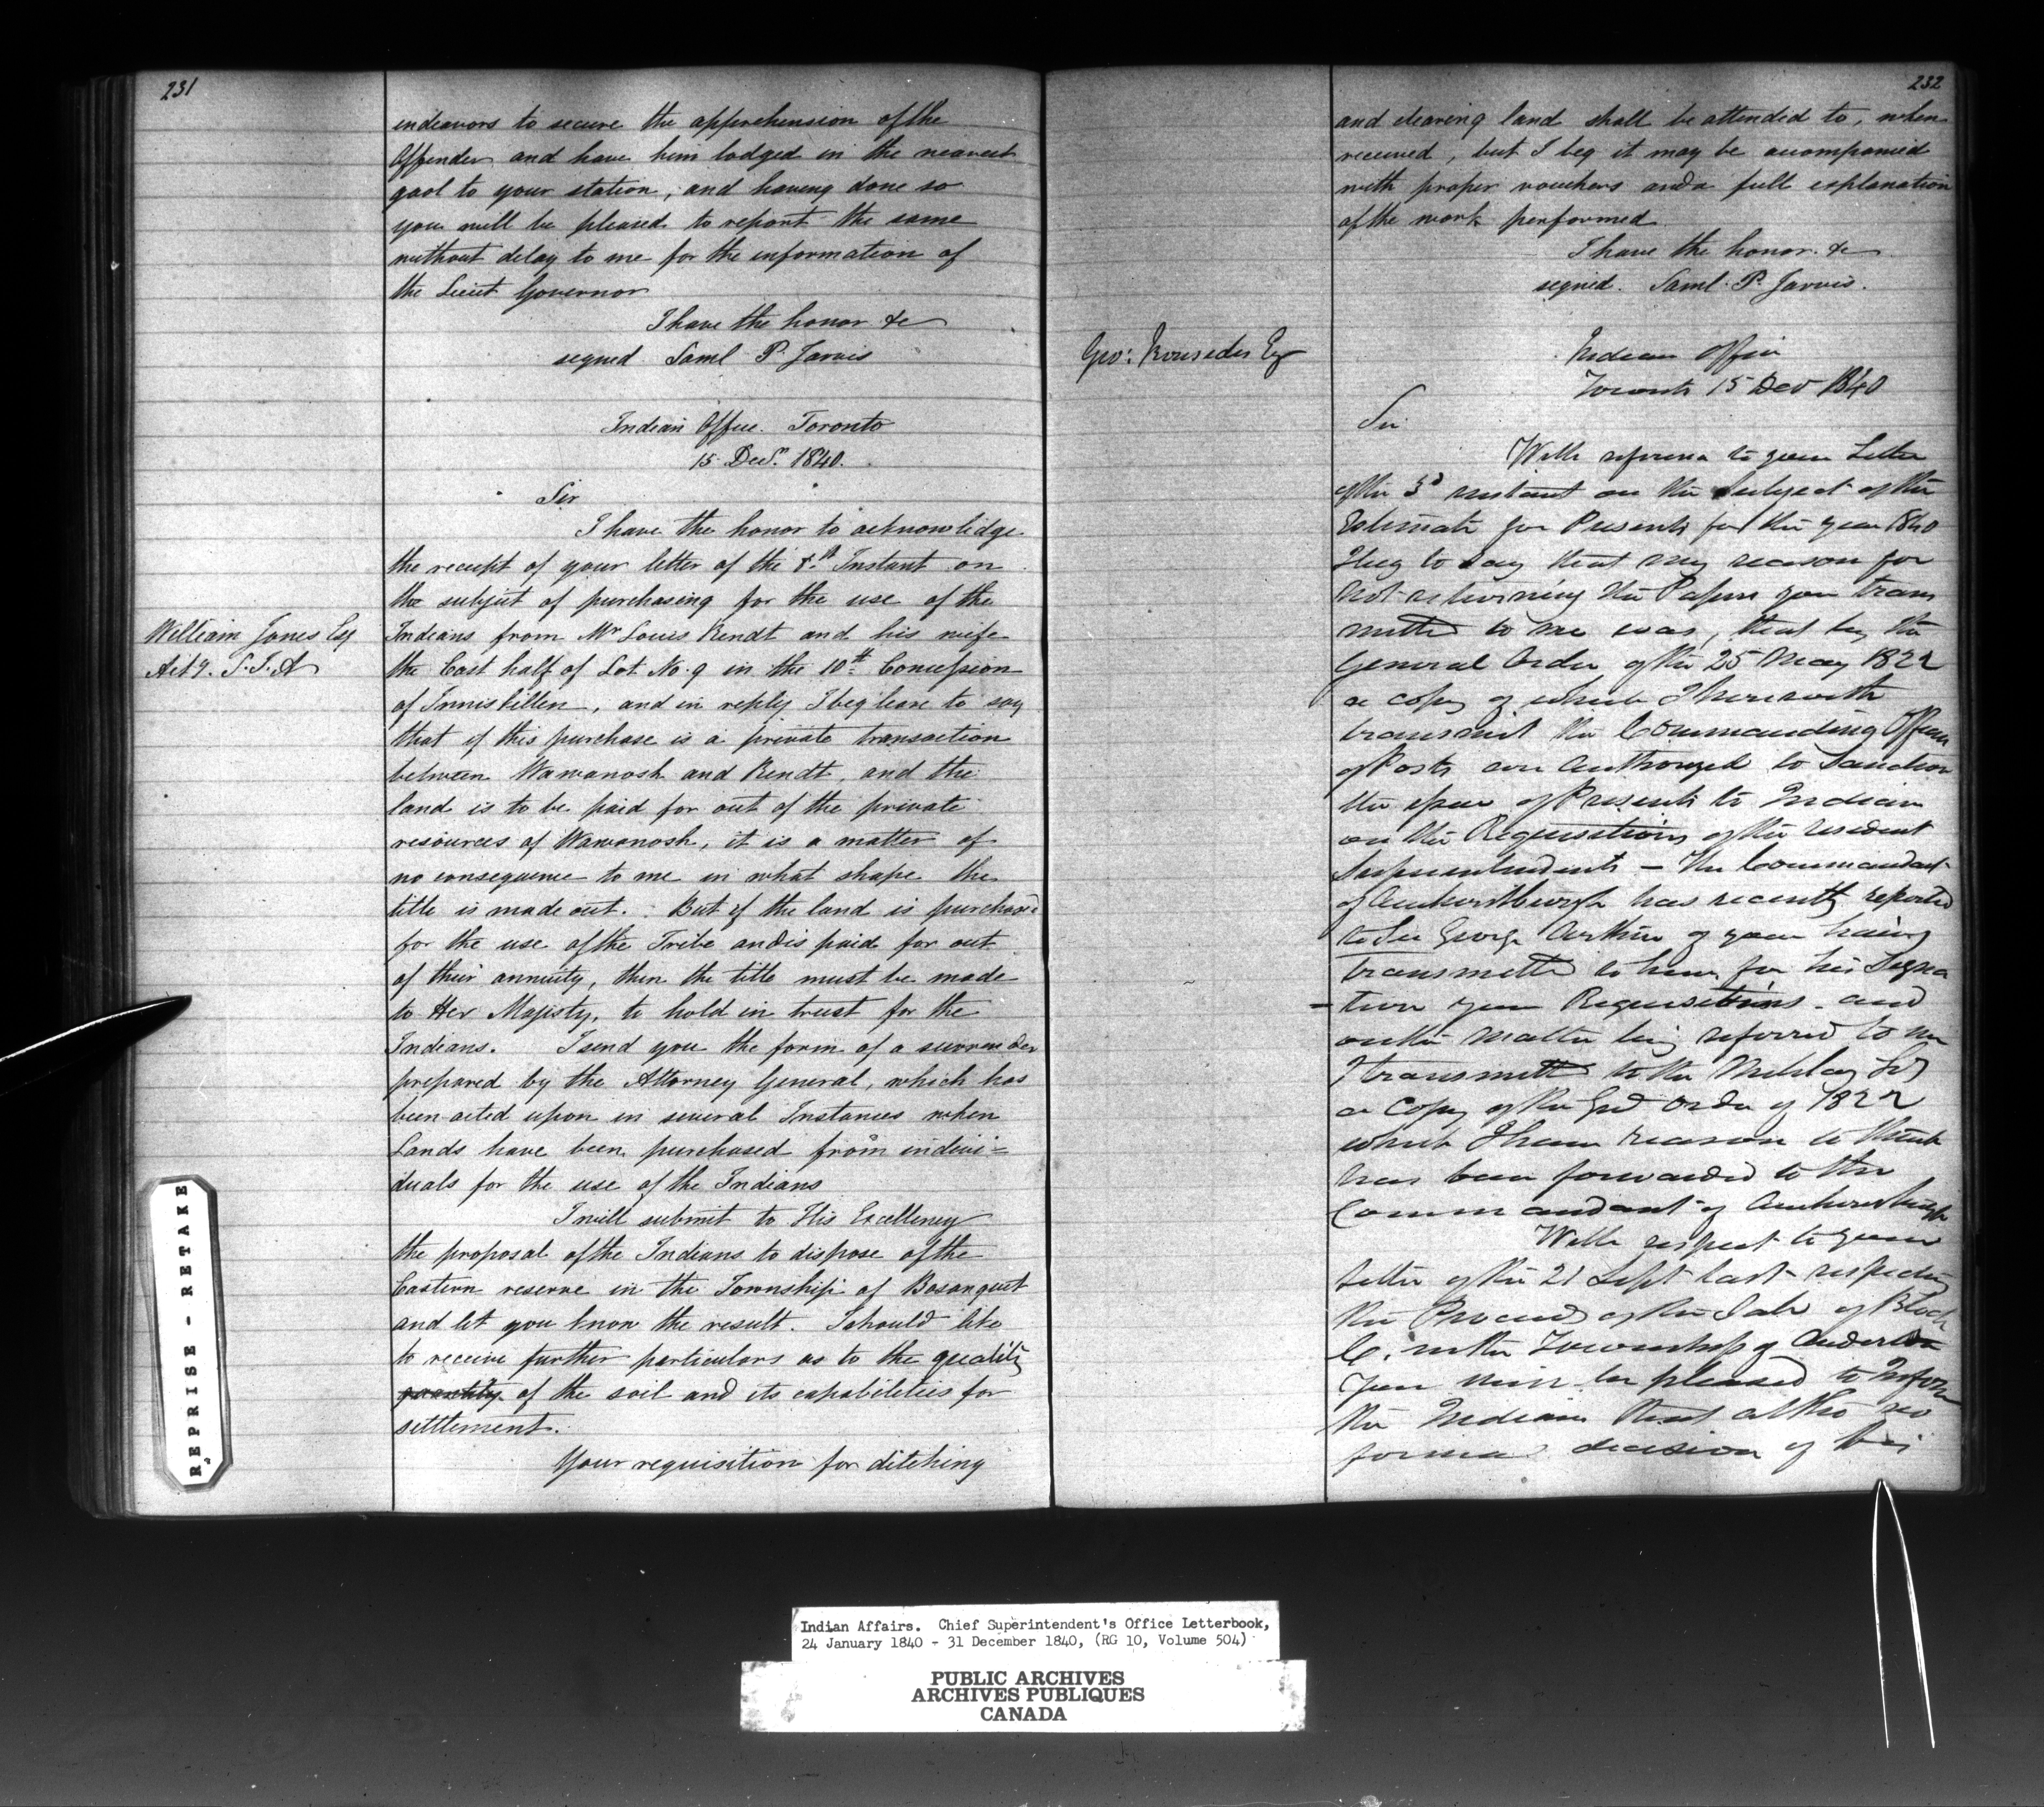 231
endeavors to secure the apprehension of the
Offender and have him lodged in the nearest
gaol to your station, and having done so
you will be pleased to report the same
without delay to me for the information of
the Lieut Governor
I have the honor &c
signed Saml P. Jarvis
Indian Office. Toronto
15 Decr. 1840.
Sir
I have the honor to acknowledge
the receipt of your letter of the 8th Instant on
the subject of purchasing for the use of the
William Jones Esq
Actg. S.I.A
Indians from Mr Louis Rendt and his wife
the East half of Lot No. 9 in the 10th Concession
of Inniskillen, and in reply I beg leave to say
that if this purchase is a private transaction
between Wawanosh and Rendt, and the
land is to be paid for out of the private
resources of Wawanosh, it is a matter of
no consequence to me in what shape the
title is made out. But if the land is purchased
for the use of the Tribe and is paid for out
of their annuity, then the title must be made
to Her Majesty, to hold in trust for the
Indians. I send you the form of a surrender
prepared by the Attorney General, which has
been acted upon in several Instances when
Lands have been purchased from indivi=
duals for the use of the Indians
I will submit to His Excellency
the proposal of the Indians to dispose of the
Eastern reserve in the Township of Bosanquet
and let you know the result. I should like
to receive further particulars as to the quality
quantity of the soil and its capabilities for
settlement.
Your requisition for ditching
232
and clearing land shall be attended to, when
received, but I beg it may be accompanied
with proper vouchers and a full explanation
of the work performed
I have the honor &c
signed. Saml. P. Jarvis.
Geo: Ironsides Esq
Indian Office
Toronto 15 Dec 1840
Sir
With reference to your Letter
of the 3d instant on the subject of the
Estimate for Presents for the year 1840
I beg to say that my reason for
not returning the Papers you trans
mitted to me was, that by the
General Order of the 25 May 1822
a copy of which I herewith
transmit the Commanding Officers
of Posts are authorized to sanction
the issue of Presents to Indians
on the Requisitions of the resident
Superintendents - The Commandant
of Amherstburgh has recently reported
to Sir George Arthur of your having
transmitted to him for his Signa
-ture your Requisitions - and
on the matter being referred to me
I transmitted to the Military Sey
a copy of the Genl Order of 1822
which I have reason to think
has been forwarded to the
Commandant of Amherstburgh
With respect to your
letter of the 21 Sept last respecting
the Proceeds of the Sale of Block
C. in the Township of Anderdon
You will be pleased to inform
the Indians that altho no
formal decision of his
REPRISE - RETAKE
Indian Affairs. Chief Superintendent's Office Letterbook,
24 January 1840 - 31 December 1840, (RG 10, Volume 504)
PUBLIC ARCHIVES
ARCHIVES PUBLIQUES
CANADA